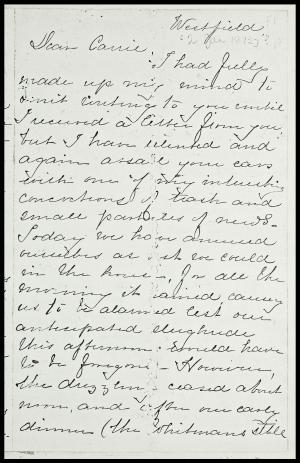 Westfield
Dear Carrie,
I had fully
made up my mind to
omit writing to you until
I received a letter from you
but I have relented and
again assail your ears
with one of my
concoctions of trash and
small particles of news.
Today we have amused
ourselves as best we could
in the house, for all the
morning it rained, causing
us to be alarmed lest our
anticipated sleighride
this afternoon would have
to be foregone - However,
the drizzling ceased about
noon, and after our early
dinner (the Whitmans